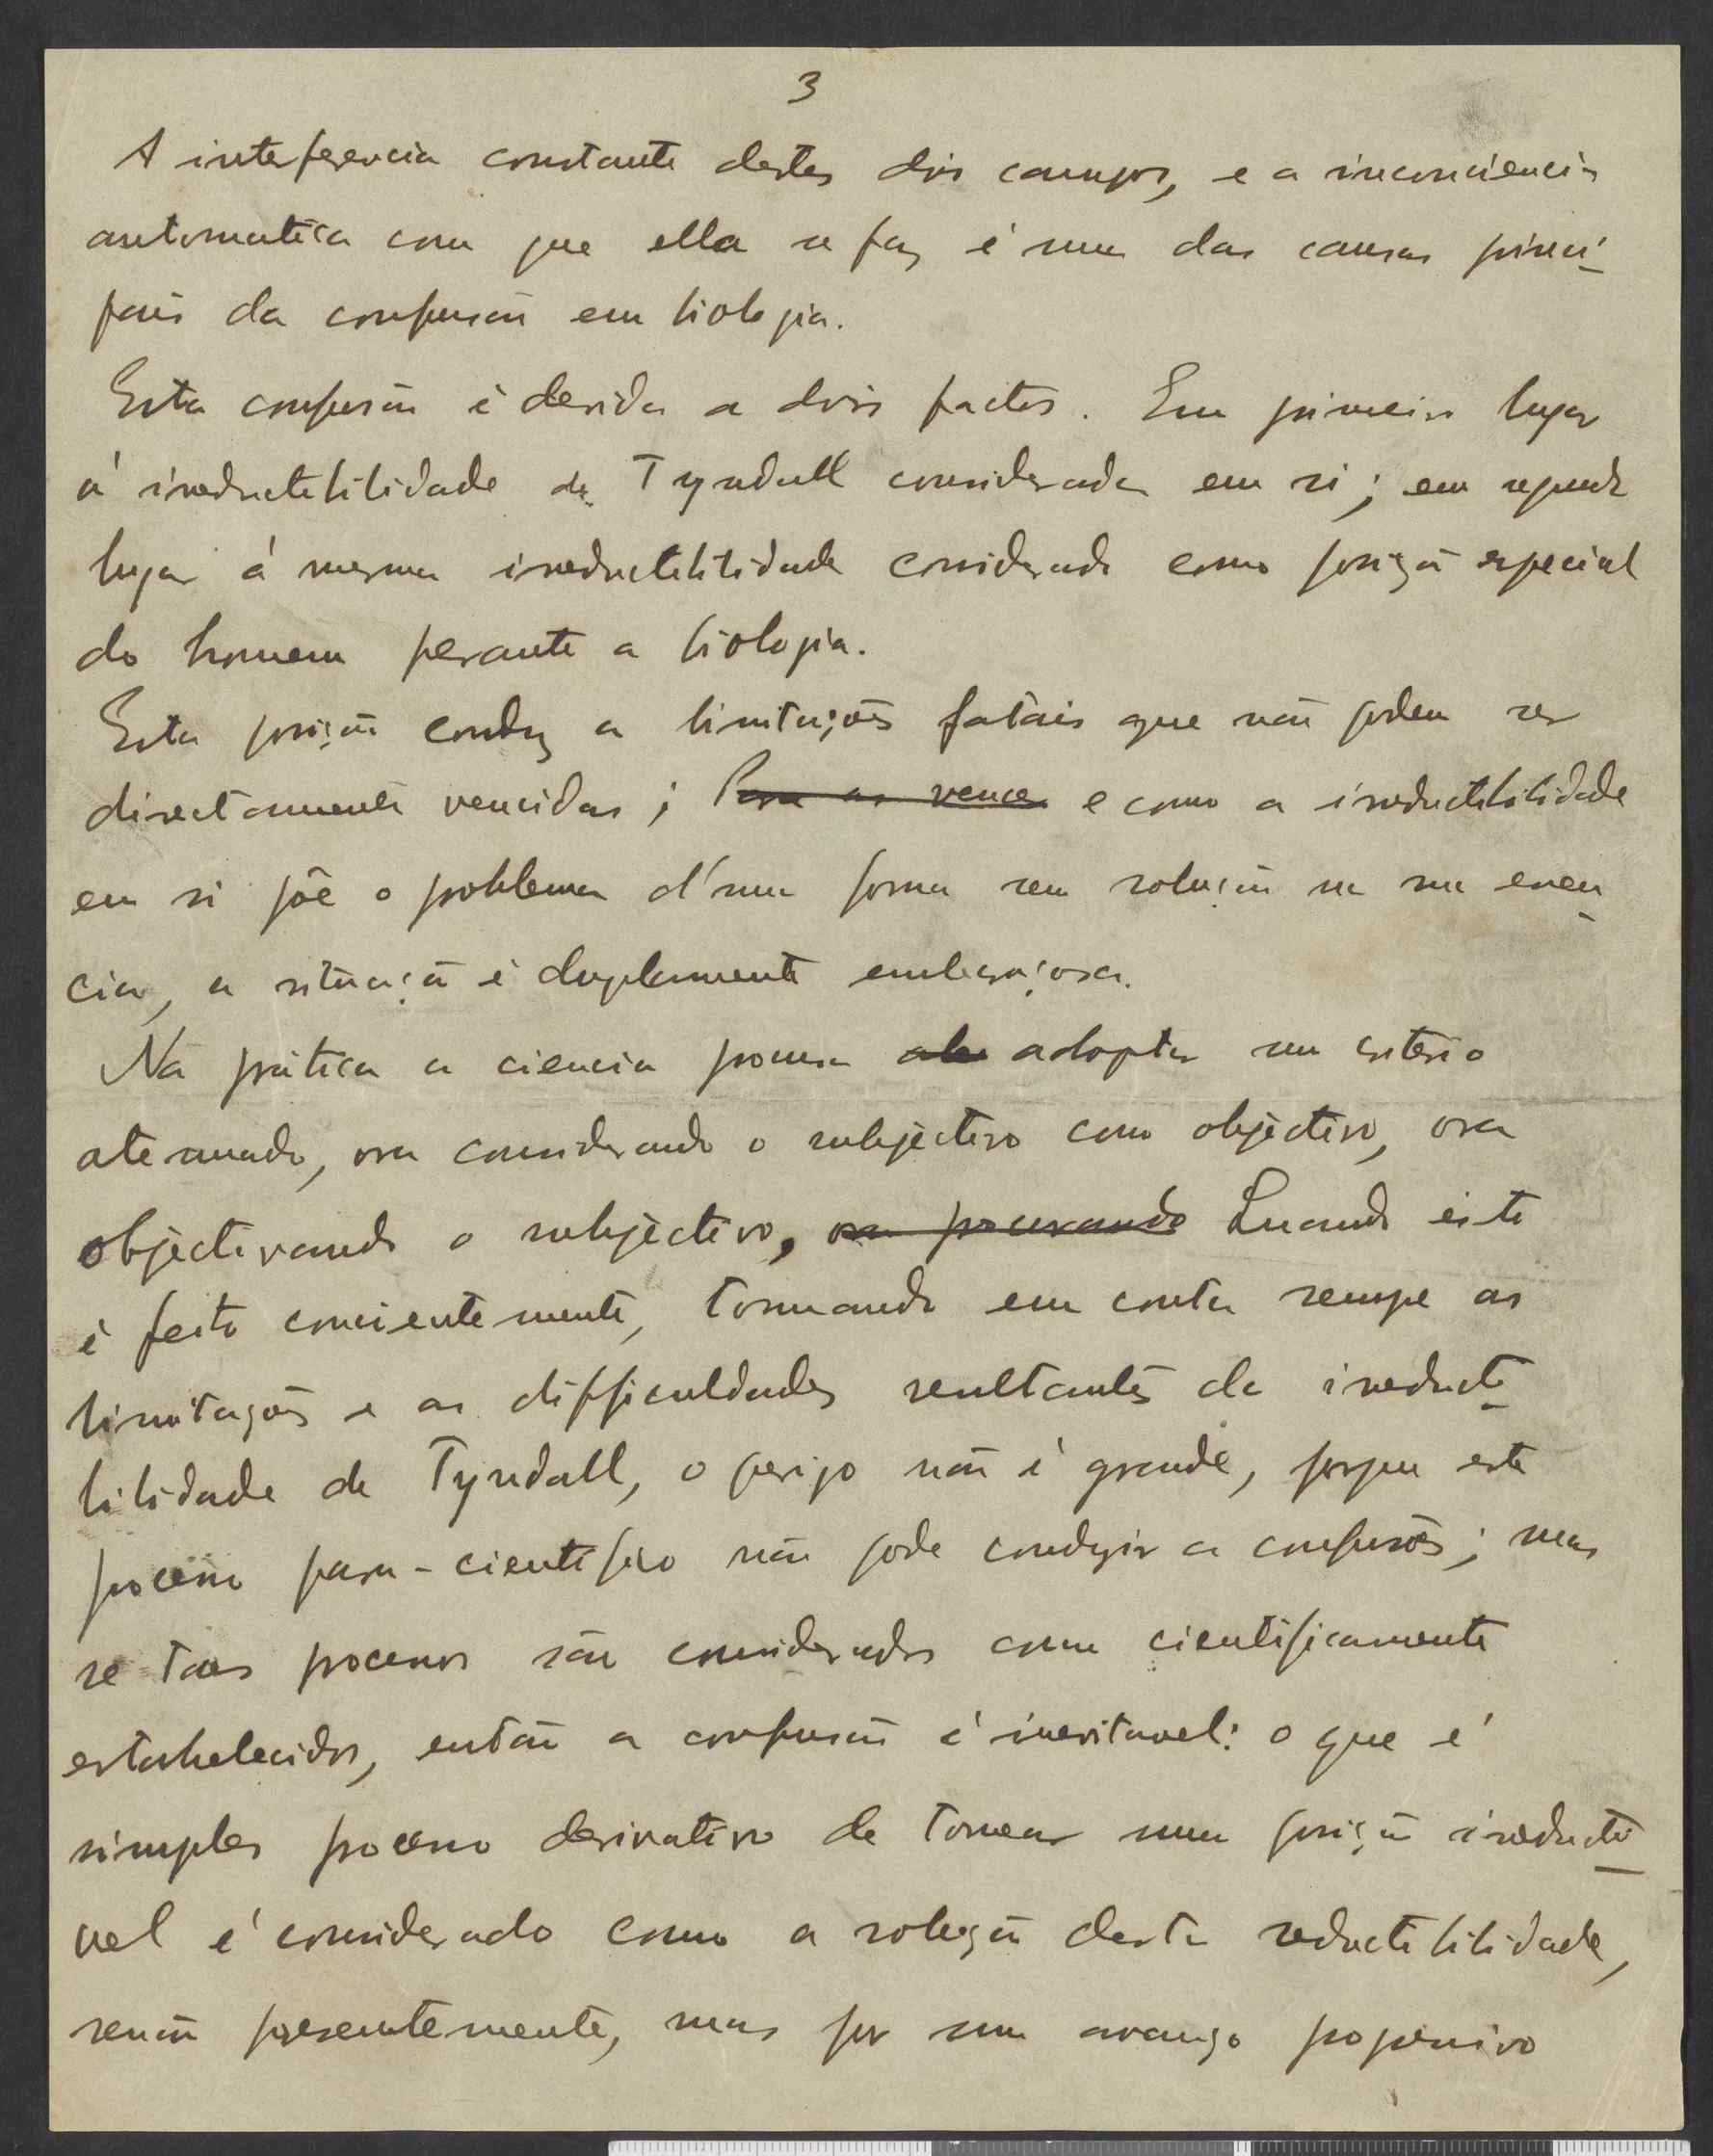 3
A interferencia constante destes dois campos, e a inconciencia
automatica com que ella se faz é uma das causas princi-
pais da confusão em biologia.
Esta confusão é devida a dois factos. Em primeiro lugar
á irreductibilidade de Tyndall considerada em si; em segundo
lugar á mesma irreductibilidade considerada como posição especial
do homem perante a biologia.
Esta posição conduz a limitações fatais que não podem ser
directamente vencidas; Para as vencer e como a irreductibilidade
em si põe o problema d'uma forma sem solução na sua essen-
cia, a situação é duplamente embaraçosa.
Na prática a ciencia procura adoptar um criterio
alternando, ora considerando o subjectivo como objectivo, ora
objectivando o subjectivo, ora procurando Quando isto
é feito concientemente, tomando em conta sempre as
limitações e as difficuldades resultantes da irreducti-
bilidade de Tyndall, o perigo não é grande, porque este
processo para-cientifico não pode conduzir a confusões; mas
se taes processos são considerados como cientificamente
estabelecidos, então a confusão é inevitavel: o que é
simples processo derivativo de tornear uma posição irreducti-
vel é considerado como a solução desta reductibilidade,
senão presentemente, mas por um avanço progressivo